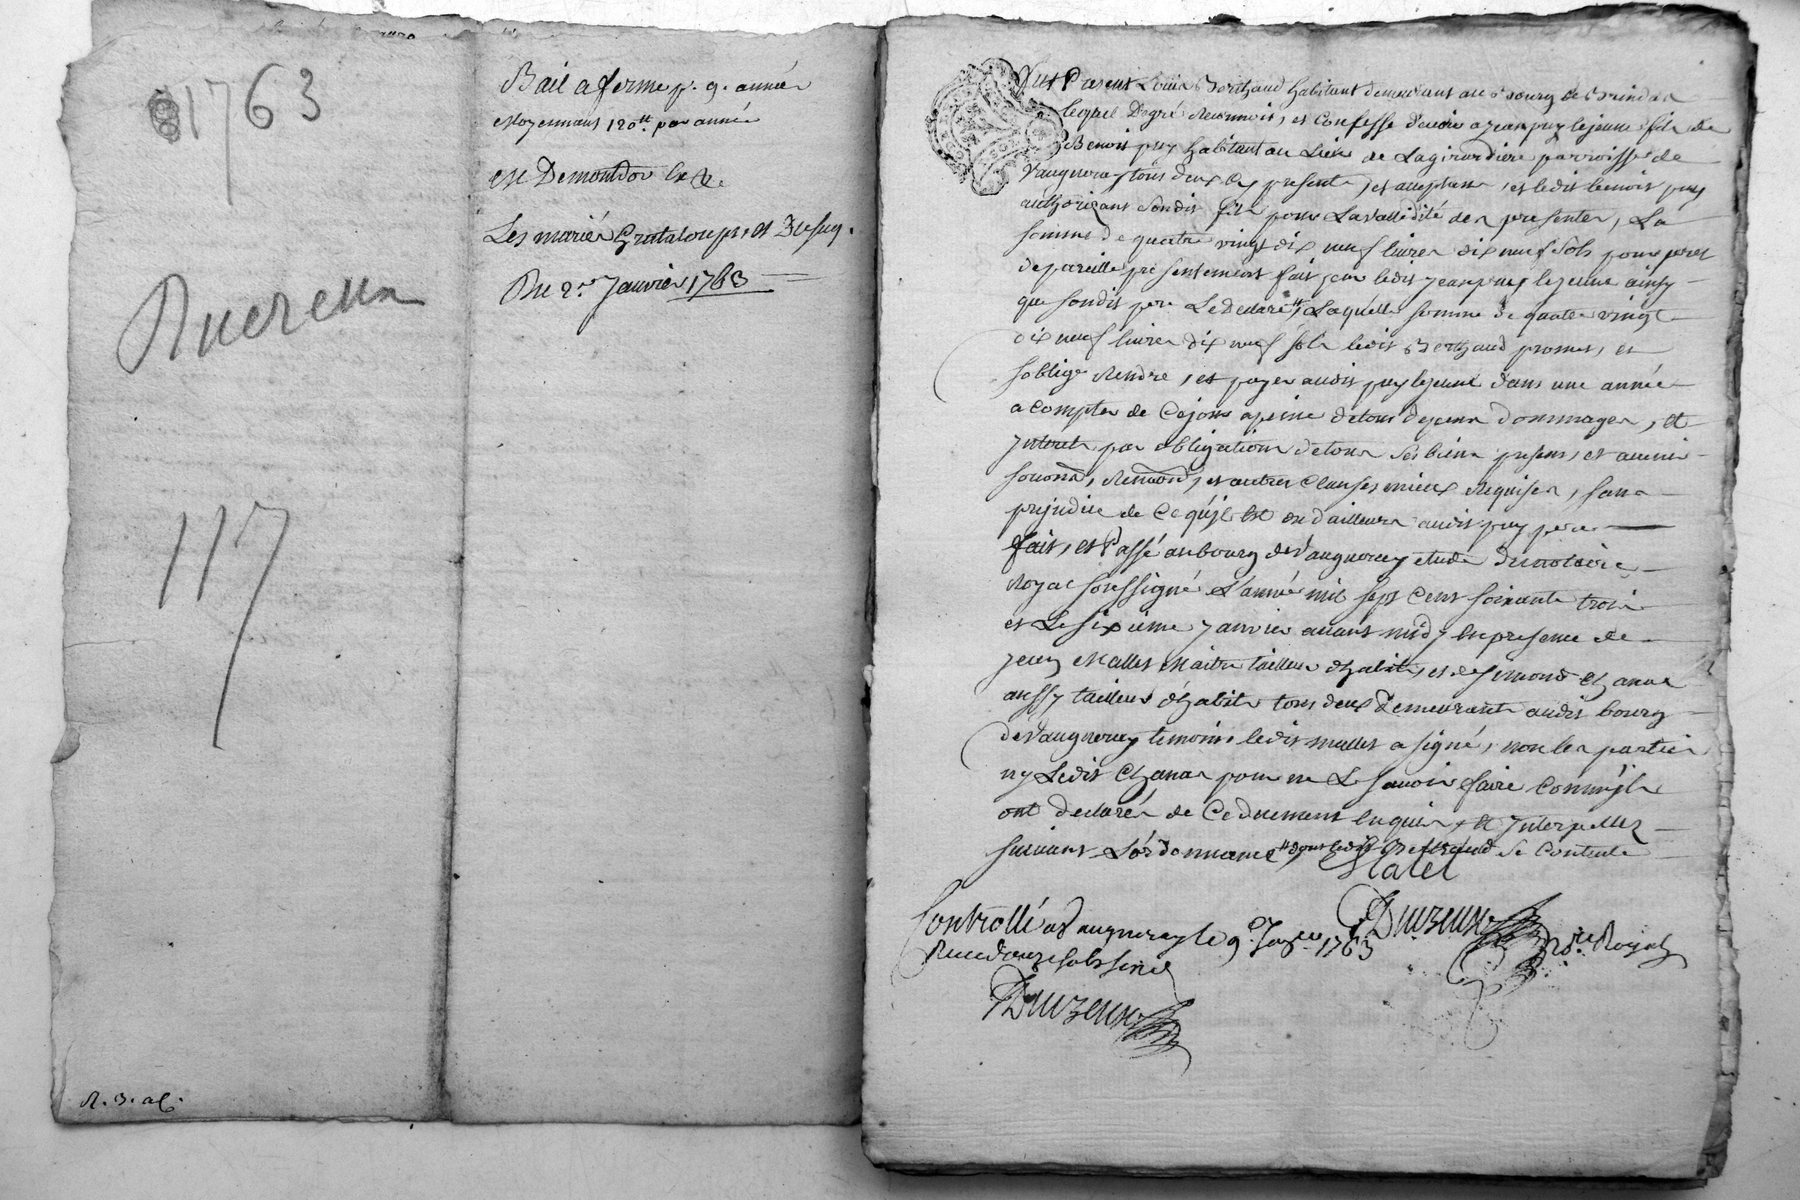 1763
117
Bail a ferme p.r 9. année
Moyennant 120tt. par année
Les mariés Grataloup, et
Du 2.e Janvier 1763
Fut Present Louis Berthaud habitant demeurant au Bourg de Brindas
lequel Degré Reconnois, et Confesse devoir a jean puy lejeune fils de
Benoit puy habitant au Lieu de Lagirardiere parroisse de
Vaugneray tous deux icy presents, et acceptants, et ledit benoit puy
authorizant Sondit fils pour Lavallidité des presentes, La
somme de quatre vingt dix neuf livres dix neuf Sols pour prest
depareille presentement fait par ledit jean puy lejeune ainsy
que sondit pere Ledeclare, Laquelle somme de quatre vingt
dix neuf livres dix neuf sols ledit Berthaud promet, et
soblige Rendre, et payer audit puy lejeune dans une année
a compter de Cejour apeine detous depens dommages, et
Interets par obligation detous Ses biens presens, et avenir
et autres Clauses mieux Requises, sans
prejudice de Cequ'il est du d'ailleurs audit puy pere
fait, et Passé au bourg de Vaugneray etude dunotaire
Royal soussigné L'année mil sept Cent soixante trois
et Le sixieme Janvier avant midy en presence de
Jean Mallet Maitre tailleur d'habits, et de
aussy tailleur d'habits tous deux Demeurants audit bourg
de Vaugneray temoins ledit mallet a signé, non les parties
ny Ledit pour ne Le Savoir faire Comm'ils
ont declarés de Ceduement enquis, et Interpellés
suivant L'ordonnance, dont ledit Berthaud se Contente
Malet
Controllé a Vaugneray le 9.e Janvier 1763
Receu douze sols Six
Nore Royal